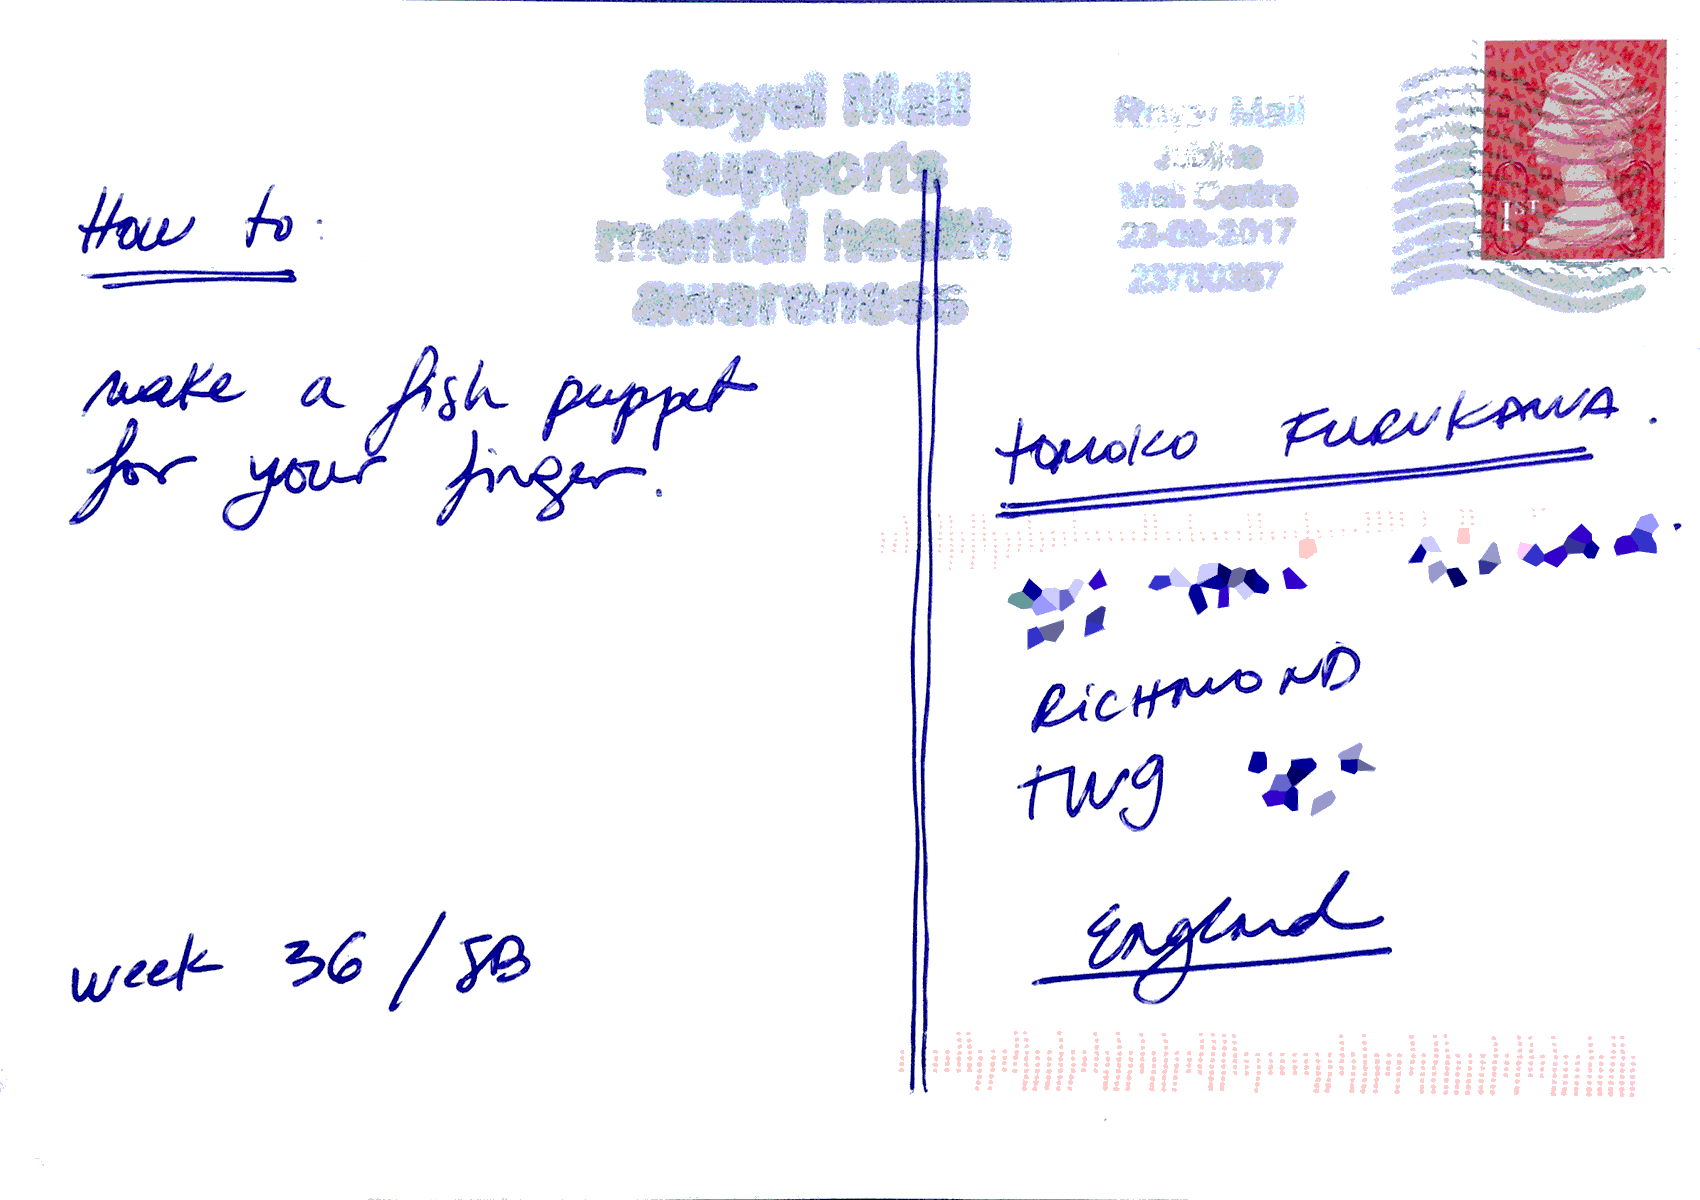 Royal Mail
supports
mental health
awareness
Royal Mail
Jubilee
Mail Centre
23-08-2017
1ST
How to:
make a fish puppet
for your finger.
week 36 / JB
TOMOKO FURUKAWA.
RICHMOND
TW9
England